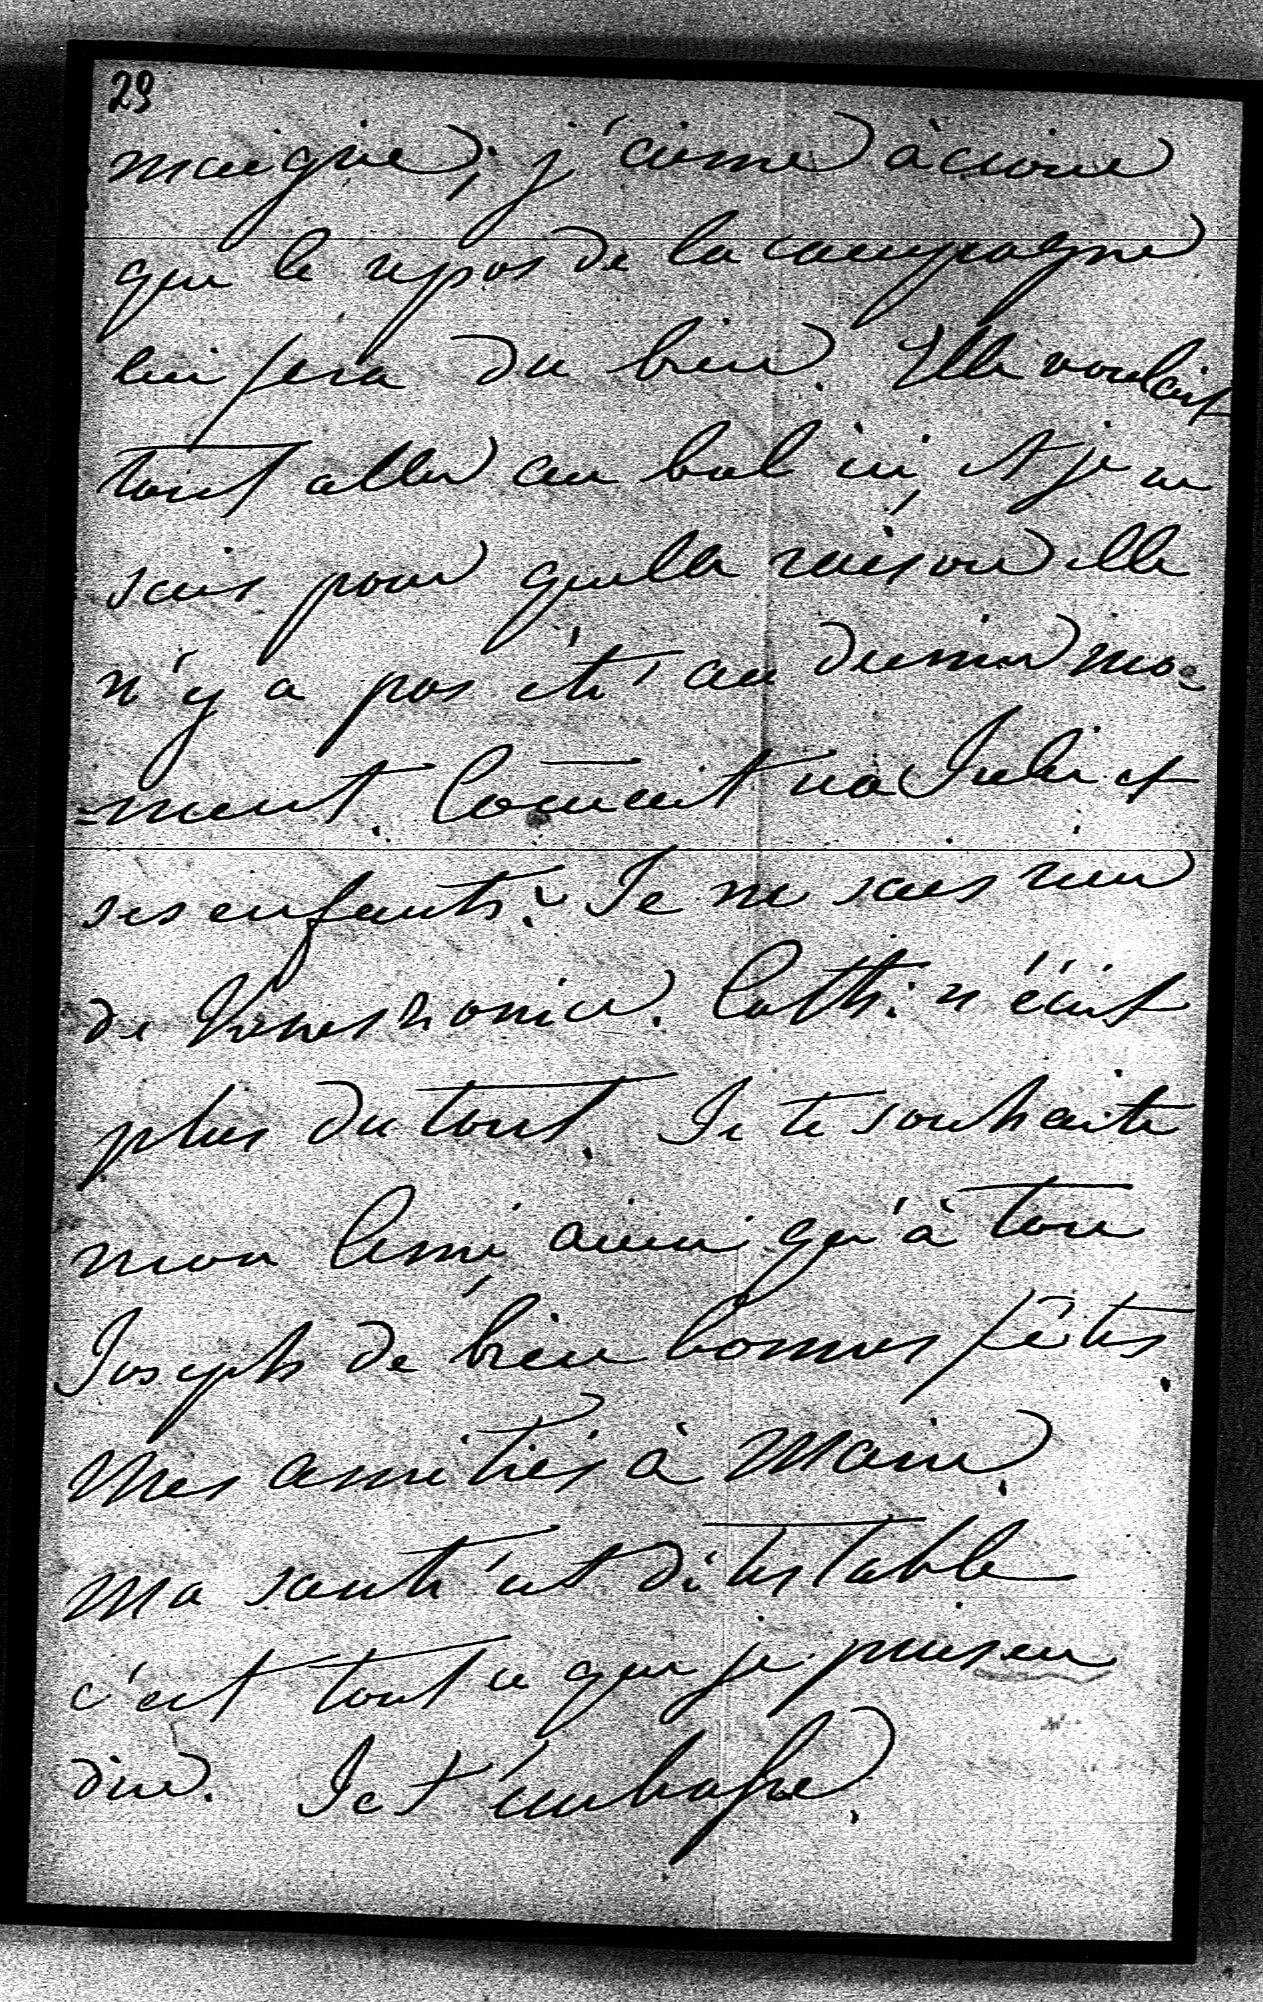 29
maigrie, j'aime à croire
que le repos de la campagne
lui fera du bien. Elle voulait
tant aller au bal ici, et je ne
sais pour quelle raison elle
n'y a pas été au dernier mo=
=ment. Com̄ent va Julie et
ses enfants? Je ne sais rien
de Kores. Cath: n'écrit
plus du tout. Je te souhaite
mon Ami, ainsi qu'à ton
Joseph de bien bonnes fêtes.
Mes amitiés à Marie.
Ma santé est détestable
c'est tout ce que je puis en
dire. Je t'embrasse.